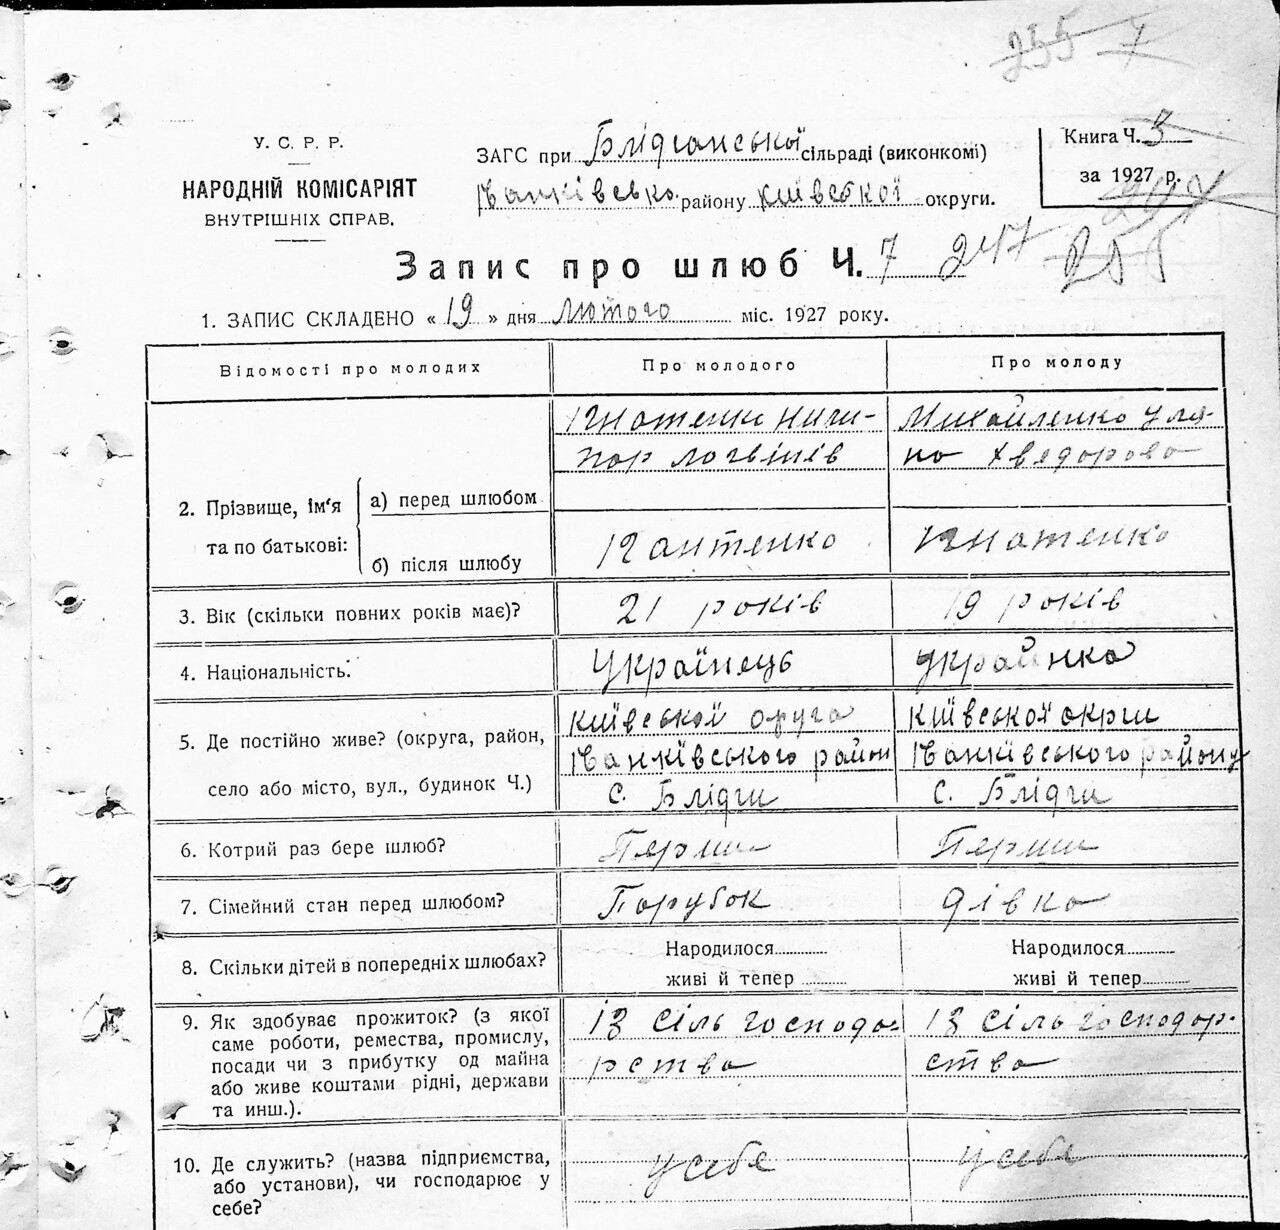 255 7
У. С. Р. Р.
НАРОДНІЙ КОМІСАРІЯТ
ВНУТРІШНІХ СПРАВ.
ЗАГС при Блідчанської сільраді (виконкомі)
Іванківсько району київської округи.
Книга Ч. 3
за 1927 р.
Запис про шлюб Ч. 7 247
255
1. ЗАПИС СКЛАДЕНО « 19 » дня лютого міс. 1927 року.
Відомості про молодих
Про молодого
Про молоду
2. Прізвище, ім‘я
та по батькові:
а) перед шлюбом
Ігнатенко Ничи-
пор Логвінів
Михайленко Уля-
на Хведорова
б) після шлюбу
Ігантенко
Ігнатенко
3. Вік (скільки повних років має)?
21 років
19 років
4. Національність.
Українець
Украінка
5. Де постійно живе? (округа, район,
село або місто, вул., будинок Ч.)
київської округа
Іванківського район
с. Блідчи
київської окрги
Іванківського району
с. Блідчи
6. Котрий раз бере шлюб?
Перши
Перши
7. Сімейний стан перед шлюбом?
Парубок
Дівка
8. Скільки дітей в попередніх шлюбах?
Народилося
живі й тепер
Народилося
живі й тепер
9. Як здобуває прожиток? (з якої
саме роботи, ремества, промислу,
посади чи з прибутку од майна
або живе коштами рідні, держави
та инш.).
Із сіль господа-
рства
Із сіль господар-
ства
10. Де служить? (назва підприємства,
або установи), чи господарює у
себе?
у себе
у себе